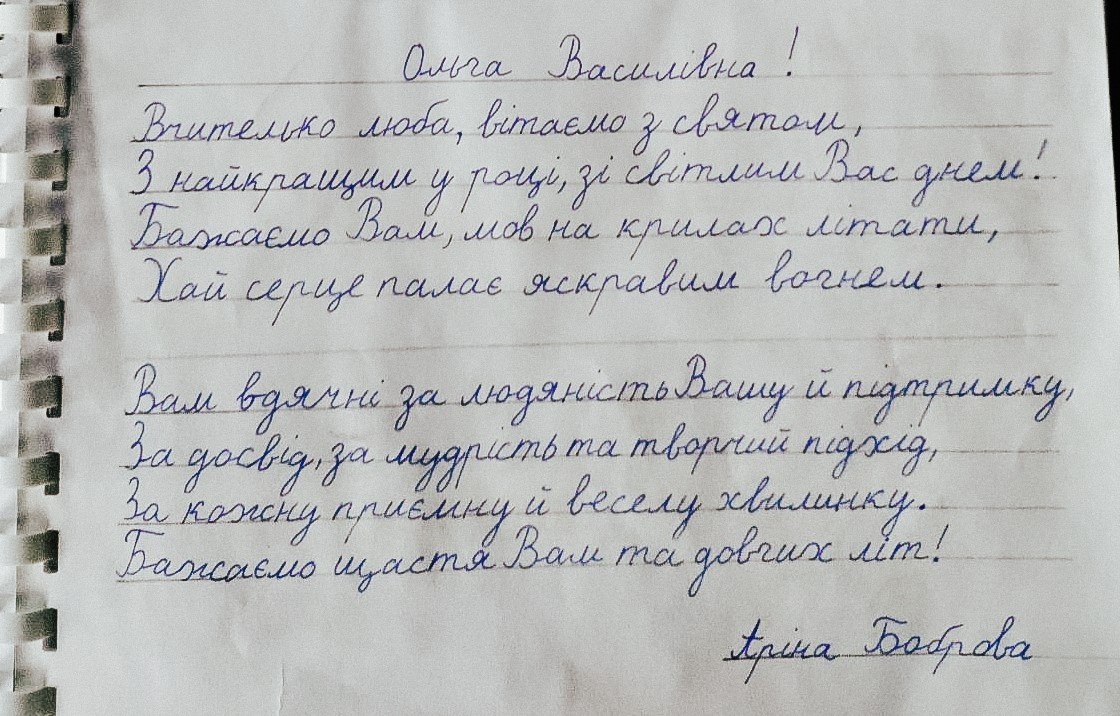 Ольга Василівна!
Вчителько люба, вітаємо з святом,
З найкращим у році, зі світлим Вас днем!
Бажаємо Вам, мов на крилах літати,
Хай серце палає яскравим вогнем.
Вам вдячні за людяність Вашу й підтримку,
За досвід, за мудрість та творчий підхід,
За кожну приємну й веселу хвилинку.
Бажаємо щастя Вам та довгих літ!
Аріна Боброва